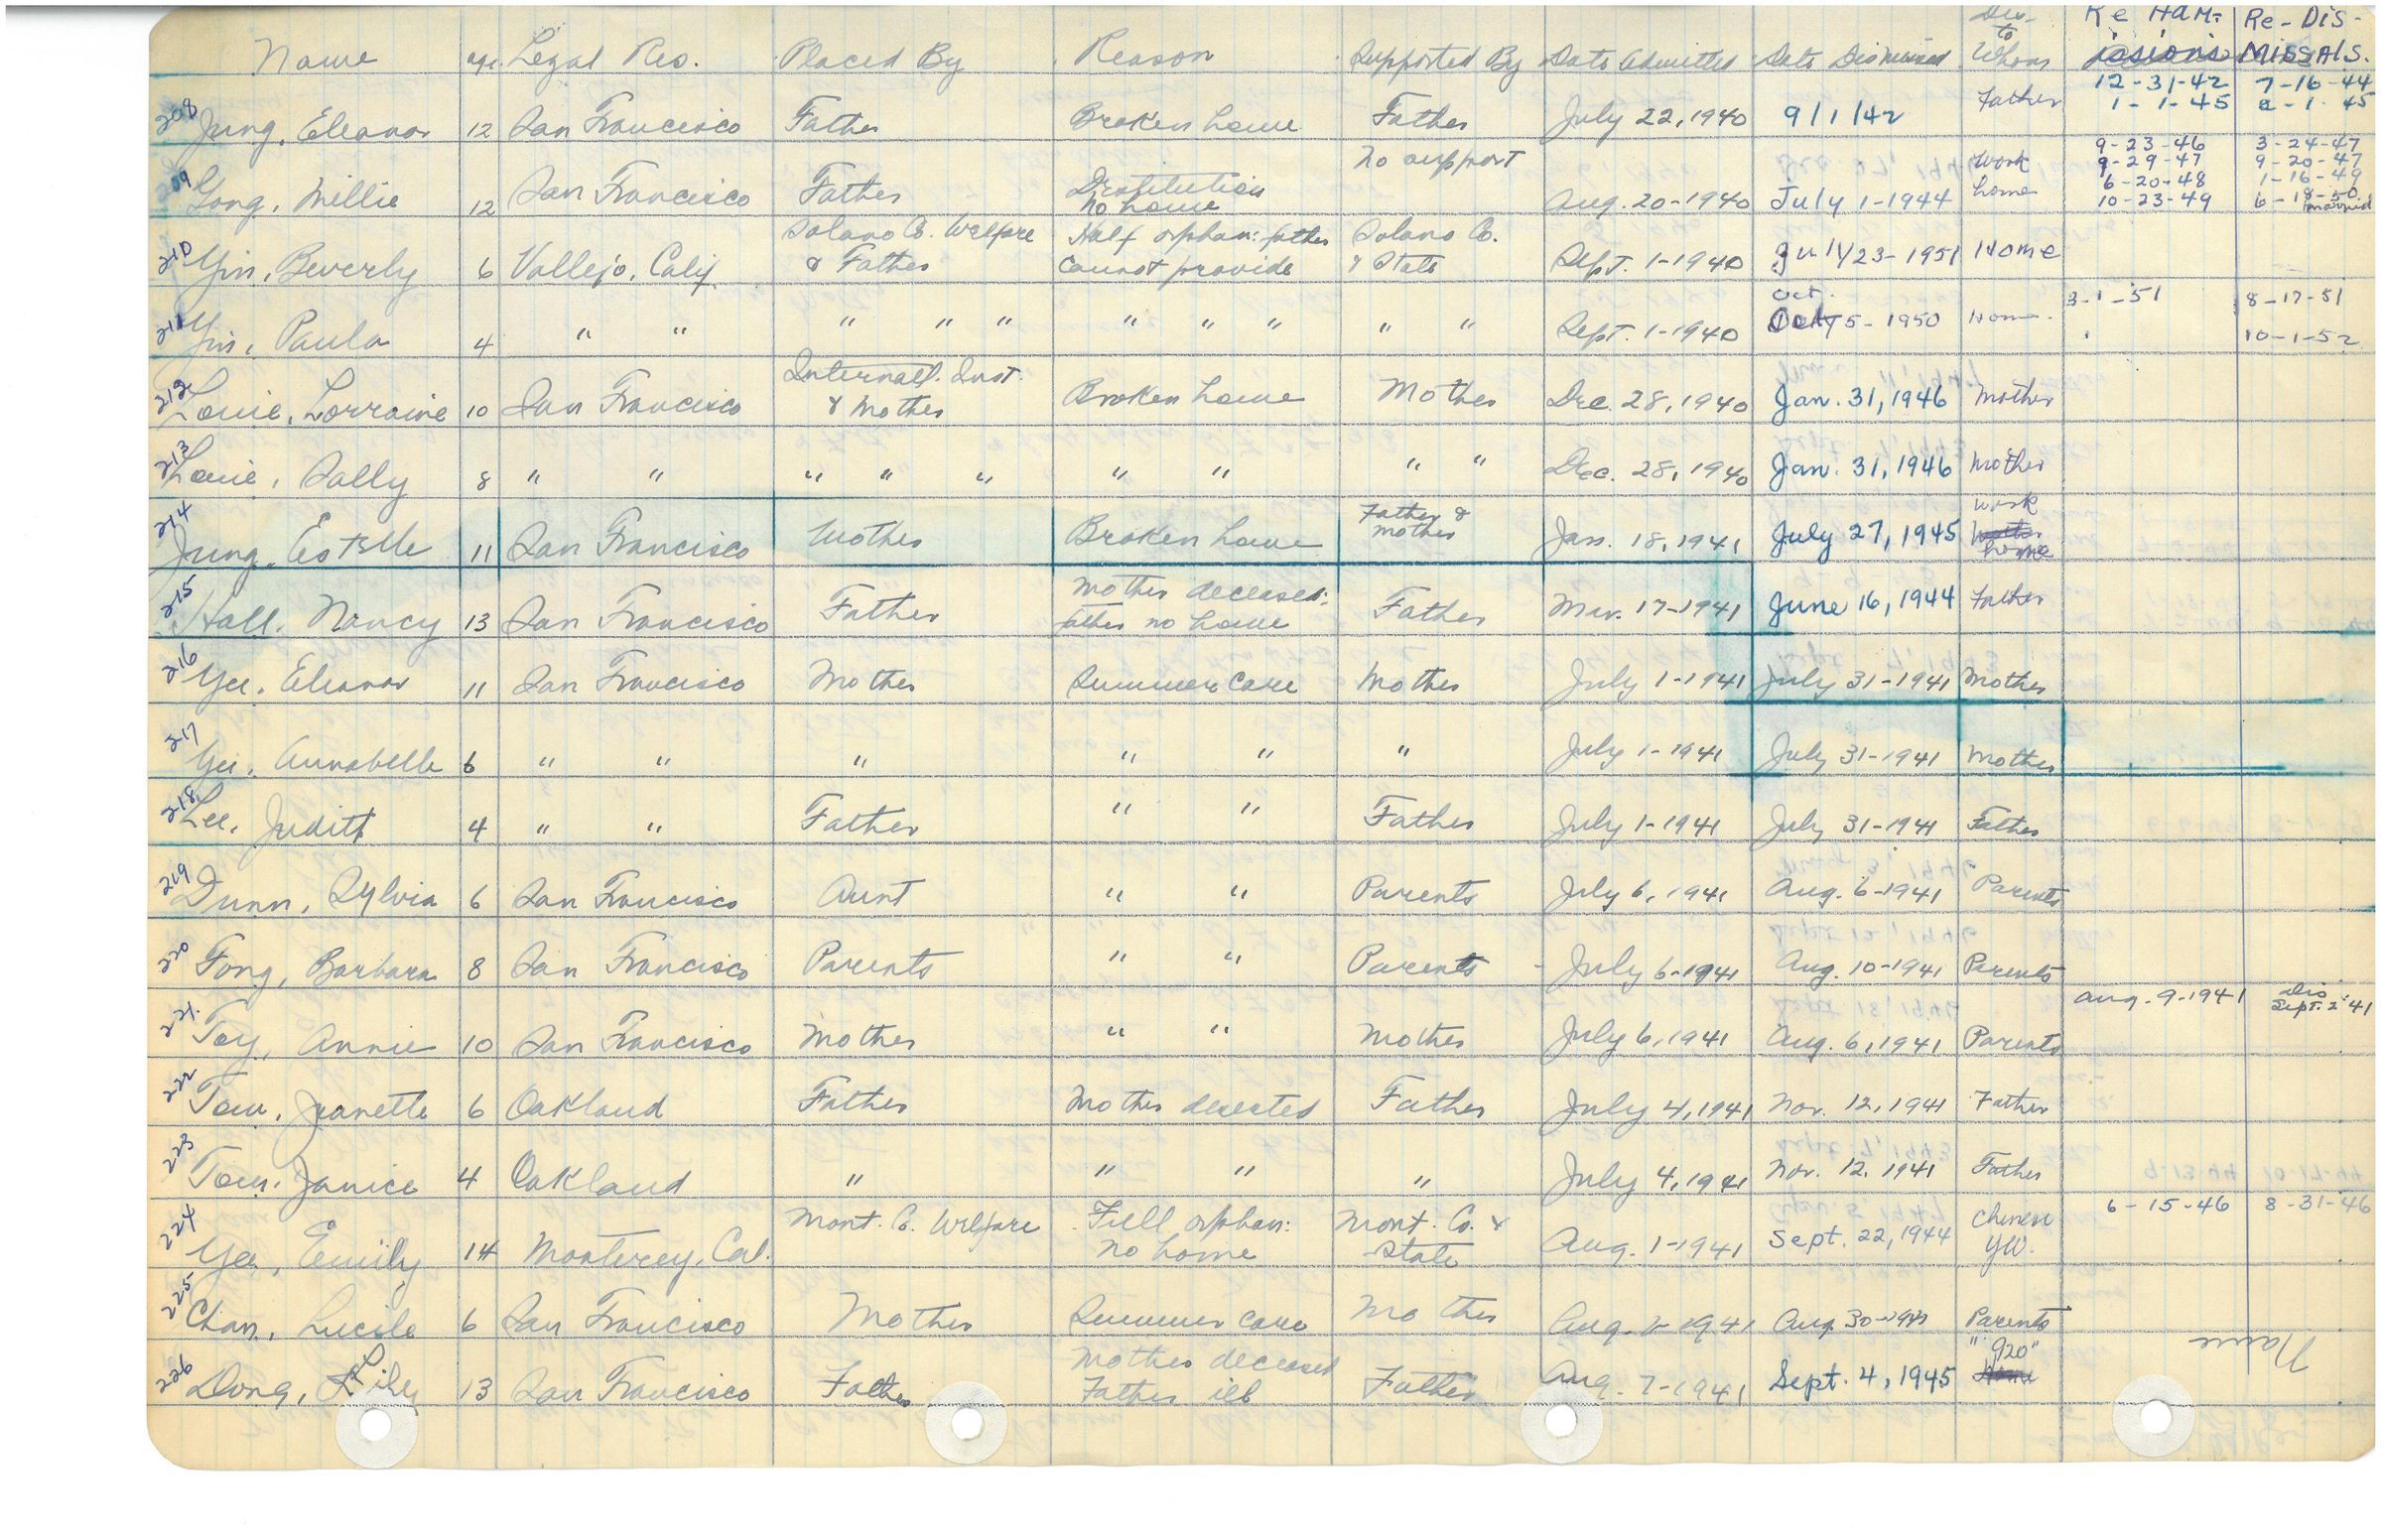 Name age Legal Res. Placed By Reason Supported By Date Admitted Date Dismissed Dis- to Whom Re Adm- issions Re-Dis- MissAls.
208 Jung, Eleanor 12 San Francisco Father Broken home Father July 22, 1940 9/1/42 Father 12-31-42 7-16-44
1-1-45 2-1-45
209 Gong, Millie 12 San Francisco Father Destitution no home No support Aug. 20-1940 July 1-1944 Work home 9-23-46 3-24-47
9-29-47 9-20-47
6-20-48 1-16-49
10-23-49 6-18-50 married
210 Yin, Beverly 6 Vallejo, Calif. Solano Co. Welfare & Father Half orphan: father cannot provide Solano Co. & State Sept. 1-1940 July 23-1951 Home
211 Yin, Paula 4 " " " " " " " " " " Sept. 1-1940 Oct. 5-1950 Home. 3-1-51 8-17-51
10-1-52
212 Louie, Lorraine 10 San Francisco Internatl. Inst. & Mother Broken home Mother Dec. 28, 1940 Jan. 31, 1946 Mother
213 Louie, Sally 8 " " " " " " " " " Dec. 28, 1940 Jan. 31, 1946 Mother
214 Jung, Estelle 11 San Francisco Mother Broken home Father & Mother Jan. 18, 1941 July 27, 1945 work home
215 Hall, Nancy 13 San Francisco Father Mother deceased: father no home Father Mar. 17-1941 June 16, 1944 Father
216 Yee, Eleanor 11 San Francisco Mother Summer care Mother July 1-1941 July 31-1941 Mother
217 Yee, Annabelle 6 " " " " " " July 1-1941 July 31-1941 Mother
218 Lee, Judith 4 " " Father " " Father July 1-1941 July 31-1941 Father
219 Dunn, Sylvia 6 San Francisco Aunt " " Parents July 6, 1941 Aug. 6-1941 Parents
220 Fong, Barbara 8 San Francisco Parents " " Parents - July 6-1941 Aug. 10-1941 Parents
221. Toy, Annie 10 San Francisco Mother " " Mother July 6, 1941 Aug. 6, 1941 Parents Aug. 9-1941 Dis Sept. 2 '41
222 Tom, Jeanette 6 Oakland Father Mother deserted Father July 4, 1941 Nov. 12, 1941 Father
223 Tom, Janice 4 Oakland " " " " July 4, 1941 Nov. 12, 1941 Father
224 Yee, Emily 14 Monterey, Cal. Mont. Co. Welfare Full orphan: no home Mont. Co. & State Aug. 1-1941 Sept. 22, 1944 Chinese YW. 6-15-46 8-31-46
225 Chan, Lucile 6 San Francisco Mother Summer care Mother Aug. 2-1941 Aug 30-1941 Parents
226 Dong, Lily 13 San Francisco Father Mother deceased Father ill Father Aug. 7-1941 Sept. 4, 1945 "920"
Name